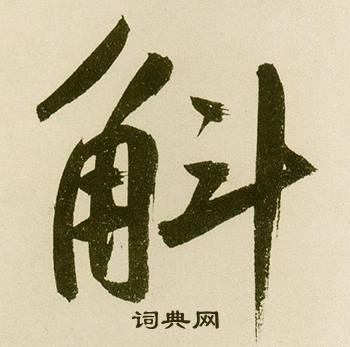 斛
词典网